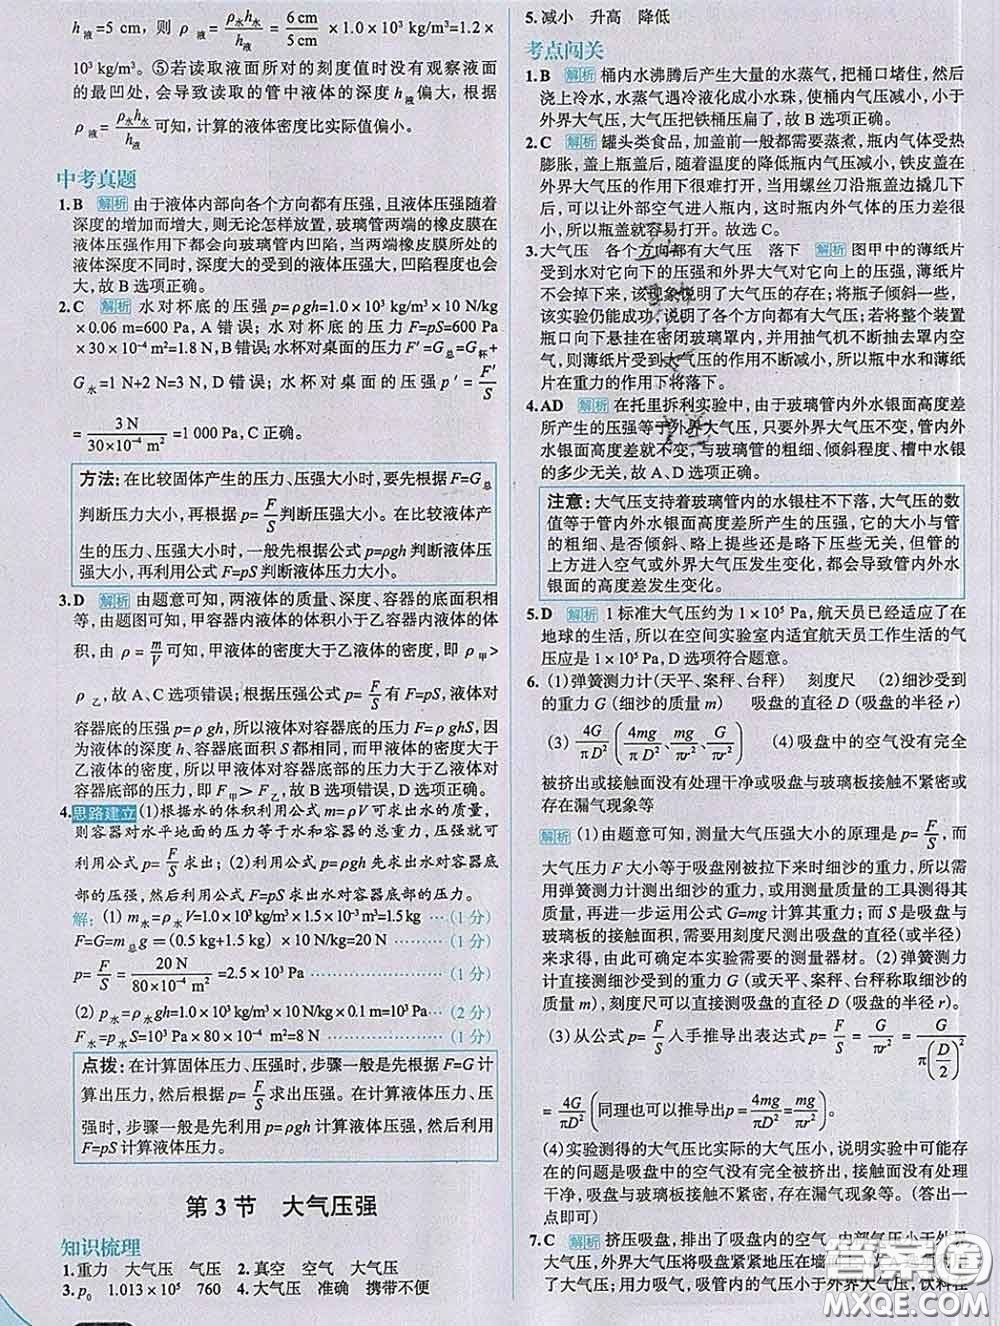 h液=5 cm，则 ρ液=ρ水h水/h液=6 cm/5 cm×1.0×10³ kg/m³=1.2×
kg/m³。⑤若读取液面所对的刻度值时没有观察液面
的最凹处，会导致读取的管中液体的深度h液偏大，根据
ρ液=ρ水h水/h液可知，计算的液体密度比实际值偏小。
中考真题
1.B 解析 由于液体内部向各个方向都有压强，且液体压强随着
深度的增加而增大，则无论怎样放置，玻璃管两端的橡皮膜在
液体压强作用下都会向玻璃管内凹陷，当两端橡皮膜所处的
深度不同时，深度大的受到的液体压强大，凹陷程度也会
大，故B选项正确。
2.C 解析 水对杯底的压强p=ρgh=1.0×10³ kg/m³×10 N/kg
×0.06 m=600 Pa，A错误；水对杯底的压力F=pS=600 Pa
×30×10⁻⁴ m²=1.8 N，B错误；水杯对桌面的压力F′=G总=G杯+
G水=1 N+2 N=3 N，D错误；水杯对桌面的压强p′=F′/S
=3 N/30×10⁻⁴ m²=1 000 Pa，C正确。
方法：在比较固体产生的压力、压强大小时，要先根据F=G总
判断压力大小，再根据p=F/S判断压强大小。在比较液体产
生的压力、压强大小时，一般先根据公式p=ρgh判断液体压
强大小，再利用公式F=pS判断液体压力大小。
3.D 解析 由题意可知，两液体的质量、深度、容器的底面积相
等，由题图可知，甲容器内液体的体积小于乙容器内液体的体
积，由ρ=m/V可知，甲液体的密度大于乙液体的密度，即ρ甲>
ρ乙，故A、C选项错误；根据压强公式p=F/S有F=pS，液体对
容器底的压强p=ρgh，所以液体对容器底的压力F=ρghS，因
为液体的深度h、容器底面积S都相同，而甲液体的密度大于
乙液体的密度，所以甲液体对容器底部的压力大于乙液体对
容器底部的压力，即F甲>F乙，故B选项错误，D选项正确。
4.思路建立 (1)根据水的体积利用公式m=ρV可求出水的质量，
则容器对水平地面的压力等于水和容器的总重力，压强就可
利用公式p=F/S求出；(2)利用公式p=ρgh先求出水对容器底
部的压强，然后利用公式F=pS求出水对容器底部的压力。
解：(1)m水=ρ水V=1.0×10³ kg/m³×1.5×10⁻³ m³=1.5 kg ···(1分)
F=G=m总g=(0.5 kg+1.5 kg)×10 N/kg=20 N ···(1分)
p=F/S=20 N/80×10⁻⁴ m²=2.5×10³ Pa ···(1分)
(2)p水=ρ水gh=1.0×10³ kg/m³×10 N/kg×0.1 m=10³ Pa ···(2分)
F水=p水S=10³ Pa×80×10⁻⁴ m²=8 N ···(1分)
点拨：在计算固体压力、压强时，步骤一般是先根据F=G计
算出压力，然后根据p=F/S求出压强。在计算液体压力、压强
时，步骤一般是先利用p=ρgh计算液体压强，然后利用
F=pS计算液体压力。
第3节 大气压强
知识梳理
1.重力 大气压 气压 2.真空 空气 大气压
3.p₀ 1.013×10⁵ 760 4.大气压 准确 携带不便
5.减小 升高 降低
考点闯关
1.B 解析 桶内水沸腾后产生大量的水蒸气，把桶口堵住，然后
浇上冷水，水蒸气遇冷液化成小水珠，使桶内气压减小，小于
外界大气压，大气压把铁桶压扁了，故B选项正确。
2.C 解析 罐头类食品，加盖前一般都需要蒸煮，瓶内气体受热
膨胀，盖上瓶盖后，随着温度的降低瓶内气压减小，铁皮盖
在外界大气压的作用下很难打开，当用螺丝刀沿瓶盖边撬几下，
可以让外部空气进入瓶内，这时瓶内外气体的压力差很
小，所以瓶盖就容易打开。故选C。
3.大气压 各个方向都有大气压 落下 解析 图甲中的薄纸片
受到水对它向下的压强和外界大气对它向上的压强，薄纸片
不会掉下来，该现象说明了大气压的存在；将瓶子倾斜一些，
该实验仍能成功，说明了各个方向都有大气压；若将整个装置
瓶口向下悬挂在密闭玻璃罩内，并用抽气机不断抽去罩内空
气，则薄纸片受到大气压的作用不断减小，所以瓶中水和薄纸
片在重力的作用下将落下。
4.AD 解析 在托里拆利实验中，由于玻璃管内外水银面高度差
所产生的压强等于外界大气压，只要外界大气压不变，管内外
水银面高度差就不变，与玻璃管的粗细、倾斜程度、槽中水银
的多少无关，故A、D选项正确。
注意：大气压支持着玻璃管内的水银柱不下落，大气压的数
值等于管内外水银面高度差所产生的压强，它的大小与管
的粗细、是否倾斜、略上提些还是略下压些无关，但管的
上方进入空气或外界大气压发生变化，都会导致管内外水
银面的高度差发生变化。
5.D 解析 1标准大气压约为1×10⁵ Pa，航天员已经适应了在
地球的生活，所以在空间实验室内适宜航天员工作生活的气
压应是1×10⁵ Pa，D选项符合题意。
6.(1)弹簧测力计(天平、案秤、台秤) 刻度尺 (2)细沙受到
的重力G(细沙的质量m) 吸盘的直径D(吸盘的半径r)
(3)4G/πD²(4mg/πD²、mg/πr²、G/πr²) (4)吸盘中的空气没有完全
被挤出或接触面没有处理干净或吸盘与玻璃板接触不紧密或
存在漏气现象等
解析 (1)由题意可知，测量大气压强大小的原理是p=F/S，而
大气压力F大小等于吸盘刚被拉下来时细沙的重力，所以需
用弹簧测力计测出细沙的重力，或用测量质量的工具测得其
质量，再进一步运用公式G=mg计算其重力；而S是吸盘与
玻璃板的接触面积，需要用刻度尺测出吸盘的直径(或半径)
来求得，由此可确定本实验需要的测量器材。(2)弹簧测力
计直接测细沙受到的重力G(或天平、案秤、台秤称取细沙的
质量m)，刻度尺可以直接测吸盘的直径D(吸盘的半径r)。
(3)从公式p=F/S入手推导出表达式p=F/S=G/πr²=G/π(D/2)²
=4G/πD²(同理也可以推导出p=4mg/πD²=mg/πr²=G/πr²)
(4)实验测得的大气压比实际的大气压小，说明实验中可能存
在的问题是吸盘中的空气没有完全被挤出，接触面没有处理
干净，吸盘与玻璃板接触不紧密，存在漏气现象等。(答出一
点即可)
7.C 解析 挤压吸盘，排出了吸盘内的空气，内部气压小于外界
大气压，外界大气压将吸盘紧紧地压在墙
了大气压；用力吸气，吸管内的气压小于外界大气压，饮料在
答案圈
MXQE.COM